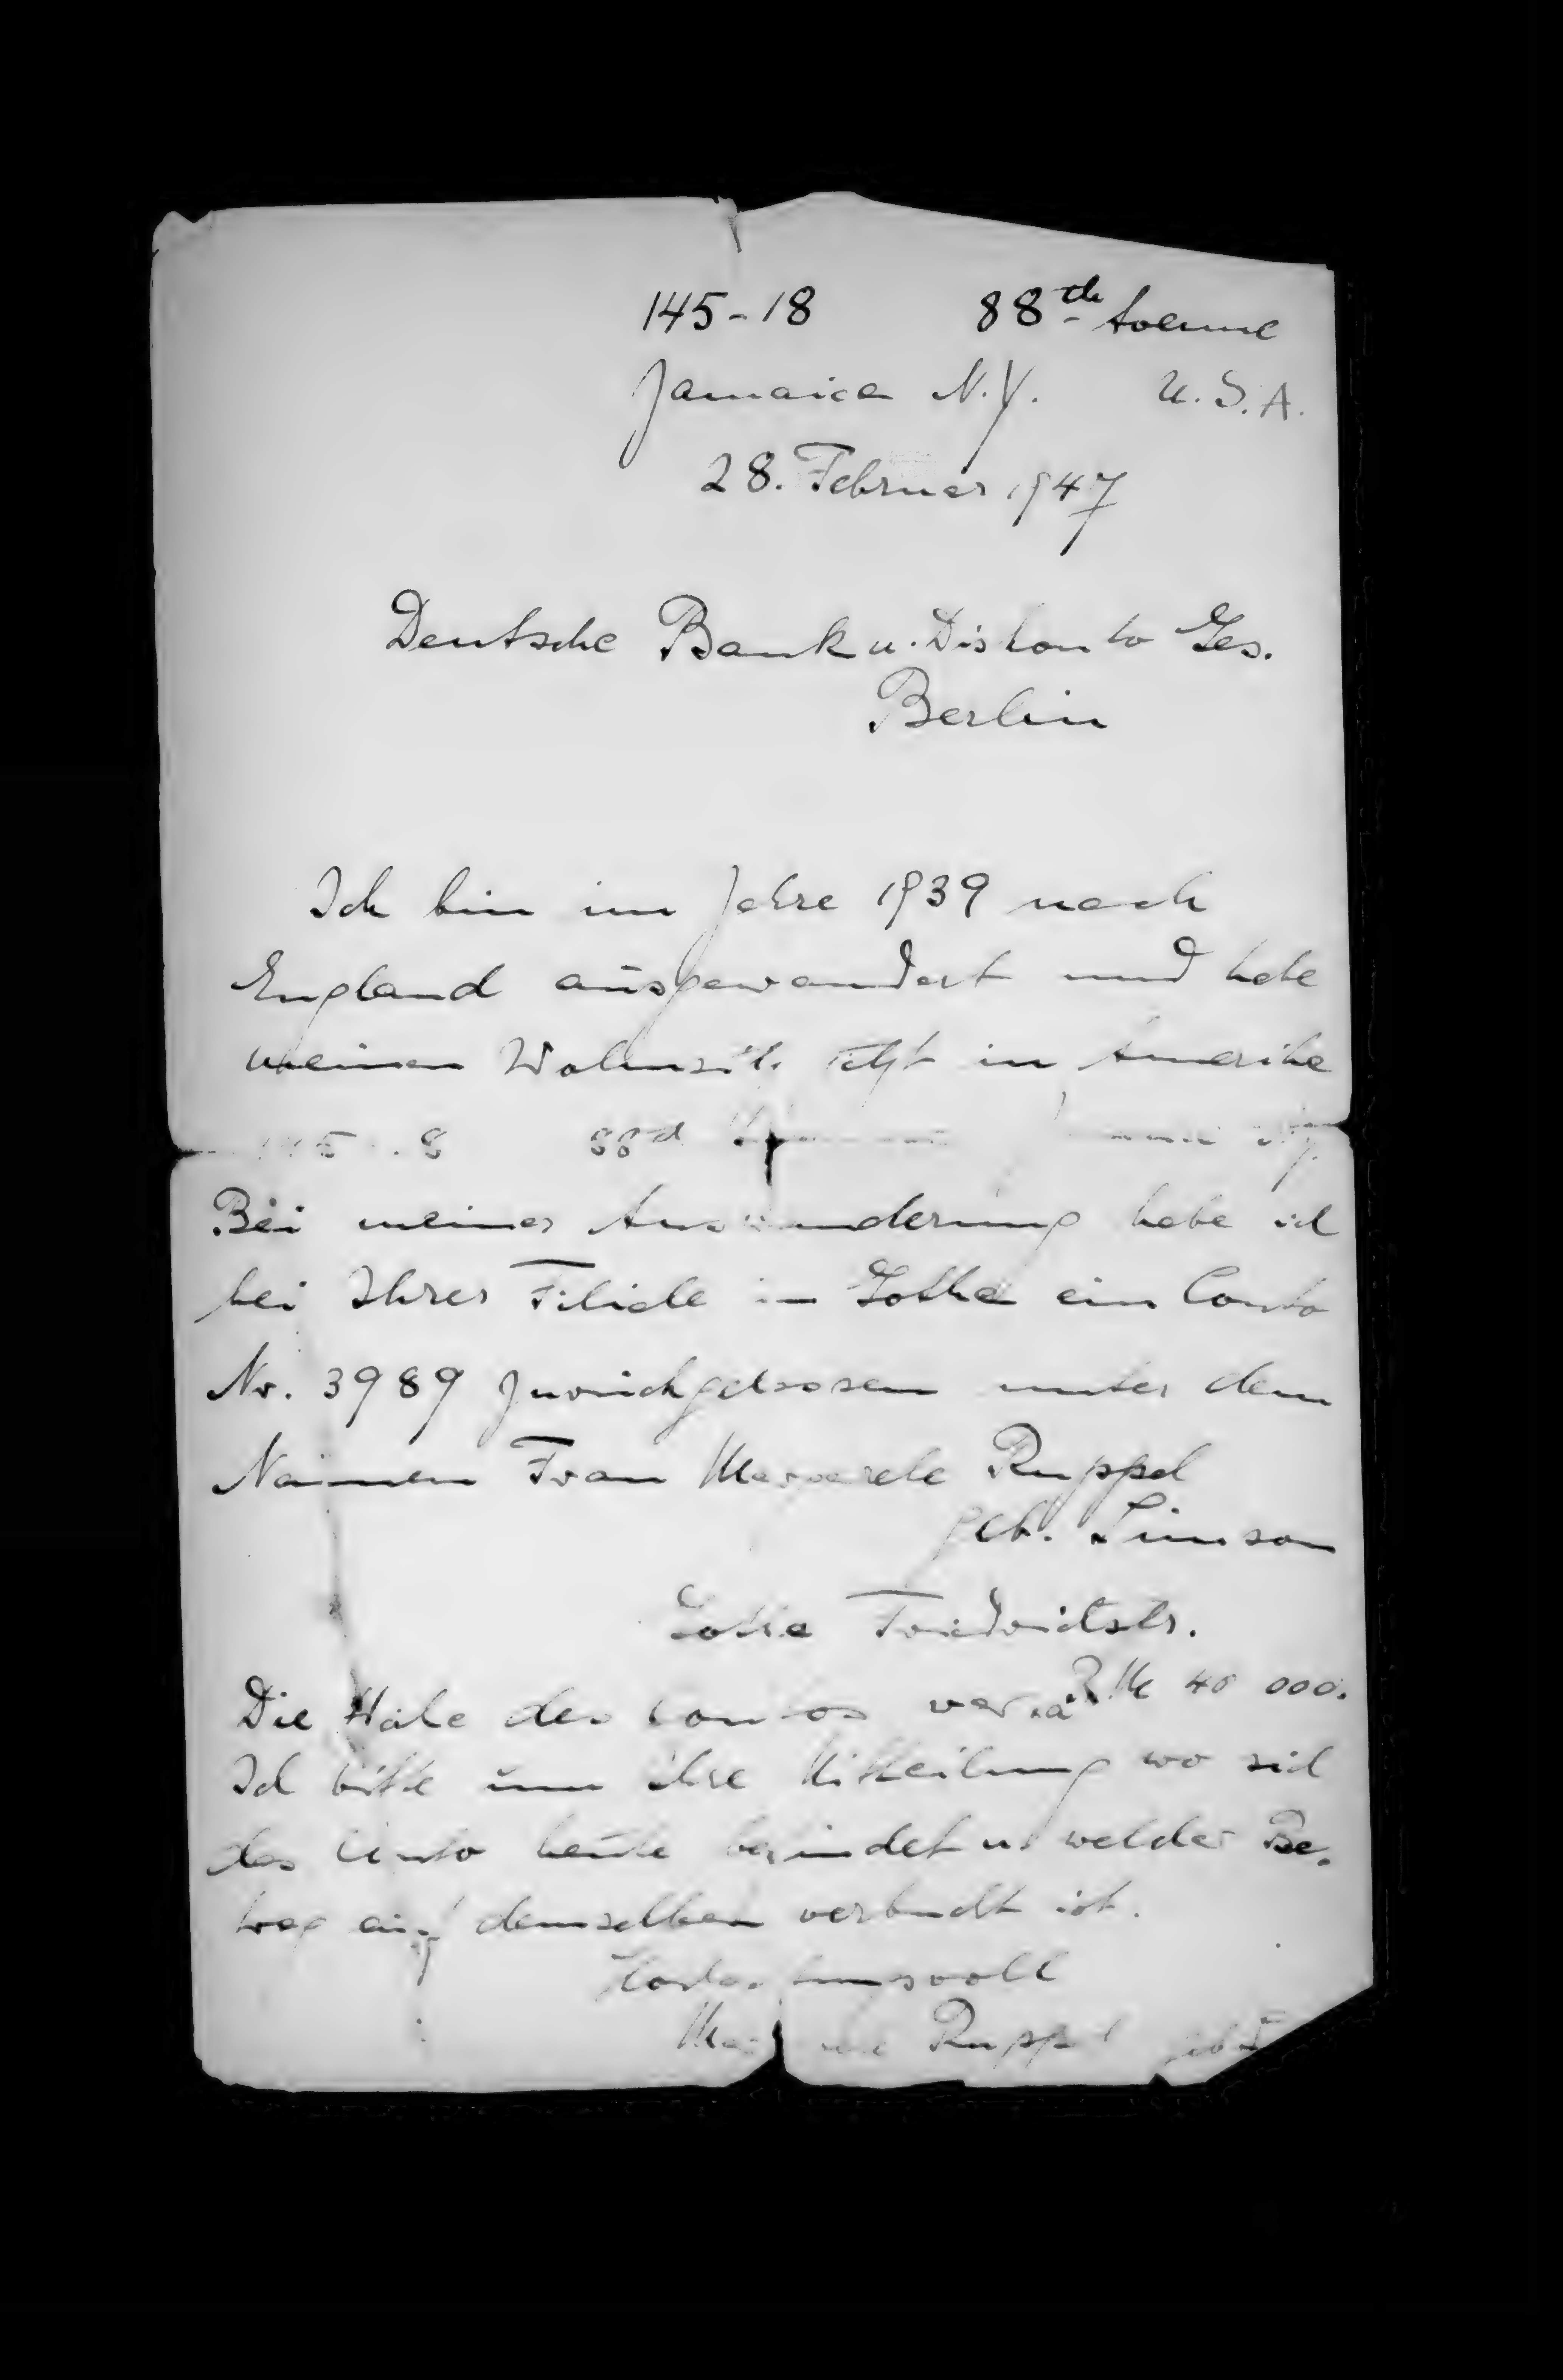 145-18 88th Avenue
Jamaica N.Y. U.S.A.
28. Februar 1947
Deutsche Bank u. Diskonto Ges.
Berlin
Ich bin im Jahre 1939 nach
England ausgewandert und habe
meinen Wohnsitz jetzt in Amerika
88d
Bei meiner Auswanderung habe ich
bei Ihrer Filiale in Gotha ein Conto
Nr. 3989 zurückgelassen unter dem
Namen Frau Margarete Ruppel
geb. Simson
Gotha Friedrichstr.
Die Höhe des Contos war ca RM 40 000.
Ich bitte um ihre Mitteilung wo sich
das Conto heute befindet u. welcher Be-
trag auf demselben verbucht ist.
Hochachtungsvoll
Ruppel geb. S